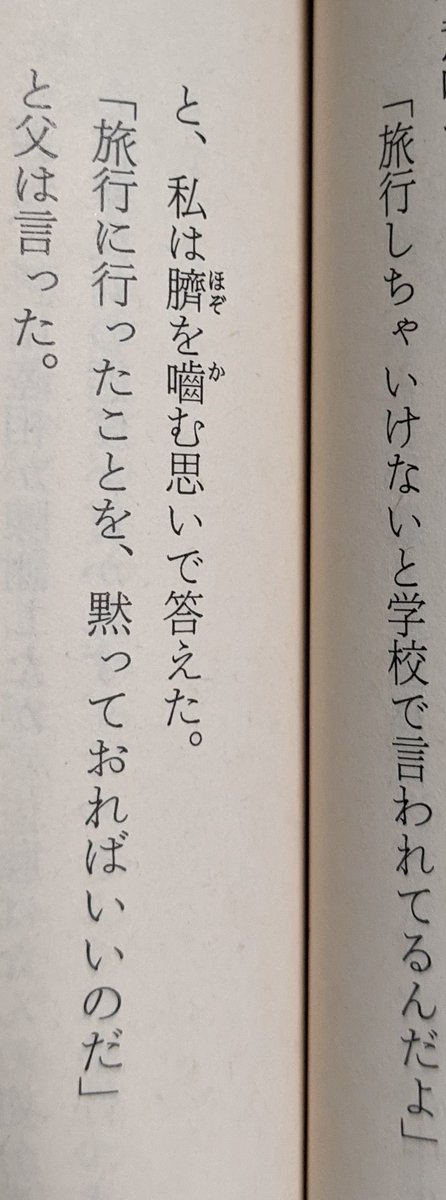 「旅行しちゃいけないと学校で言われてるんだよ」
と、私は臍を嚙む思いで答えた。
「旅行に行ったことを、黙っておればいいのだ」
と父は言った。